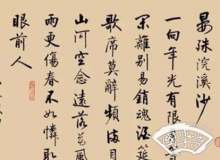 晏殊浣溪沙
一向年光有限
閑離别易銷魂酒筵
歌席莫辭頻滿目
山河空念遠落花風
雨更傷春不如憐取
眼前人